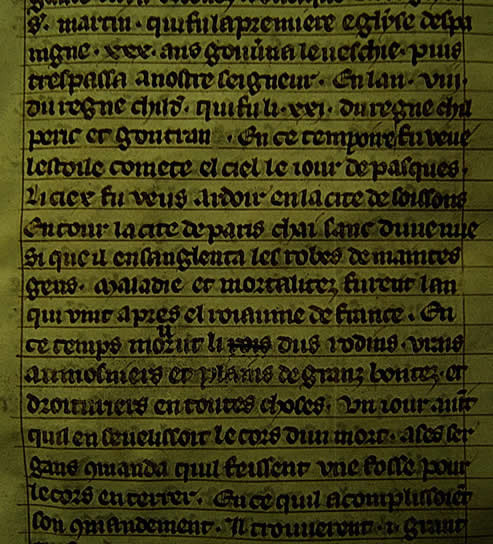 s. martin. qui fu la premiere eglyse despa
ingne. xxx. ans gouuerna leueschie. puis
trespassa a nostre seigneur. En lan. viii.
du regne child. qui fu li. xxi. du regne chil
peric et gontran. En ce tempoire fu veue
lestoile comete el ciel le iour de pasques.
Li ciex fu veus ardoir en la cite de soissons
Entour la cite de paris chai sanc du nenue
Si que il ensanglenta les robes de maintes
gens. Maladie et mortalitez furent lan
qui vint apres el roiaume de france. En
ce temps morut li dus rodins. vrais
aumosniers et plains de granz bontez. et
droituriers en toutes choses. Un iour auint
quil enseuelissoit le cors dun mort. a ses ser
gans commanda quil feissent vne fosse pour
le cors enterrer. En ce quil acomplissoient
son commandement. Il trouuerent. i. grant